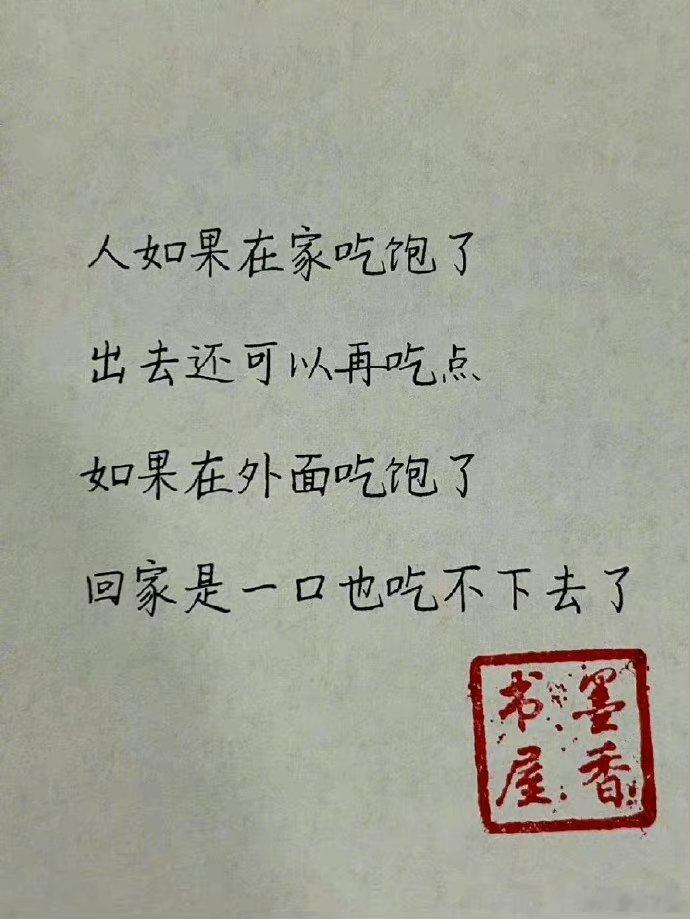 人如果在家吃饱了
出去还可以再吃点
如果在外面吃饱了
回家是一口也吃不下去了
墨香
书屋